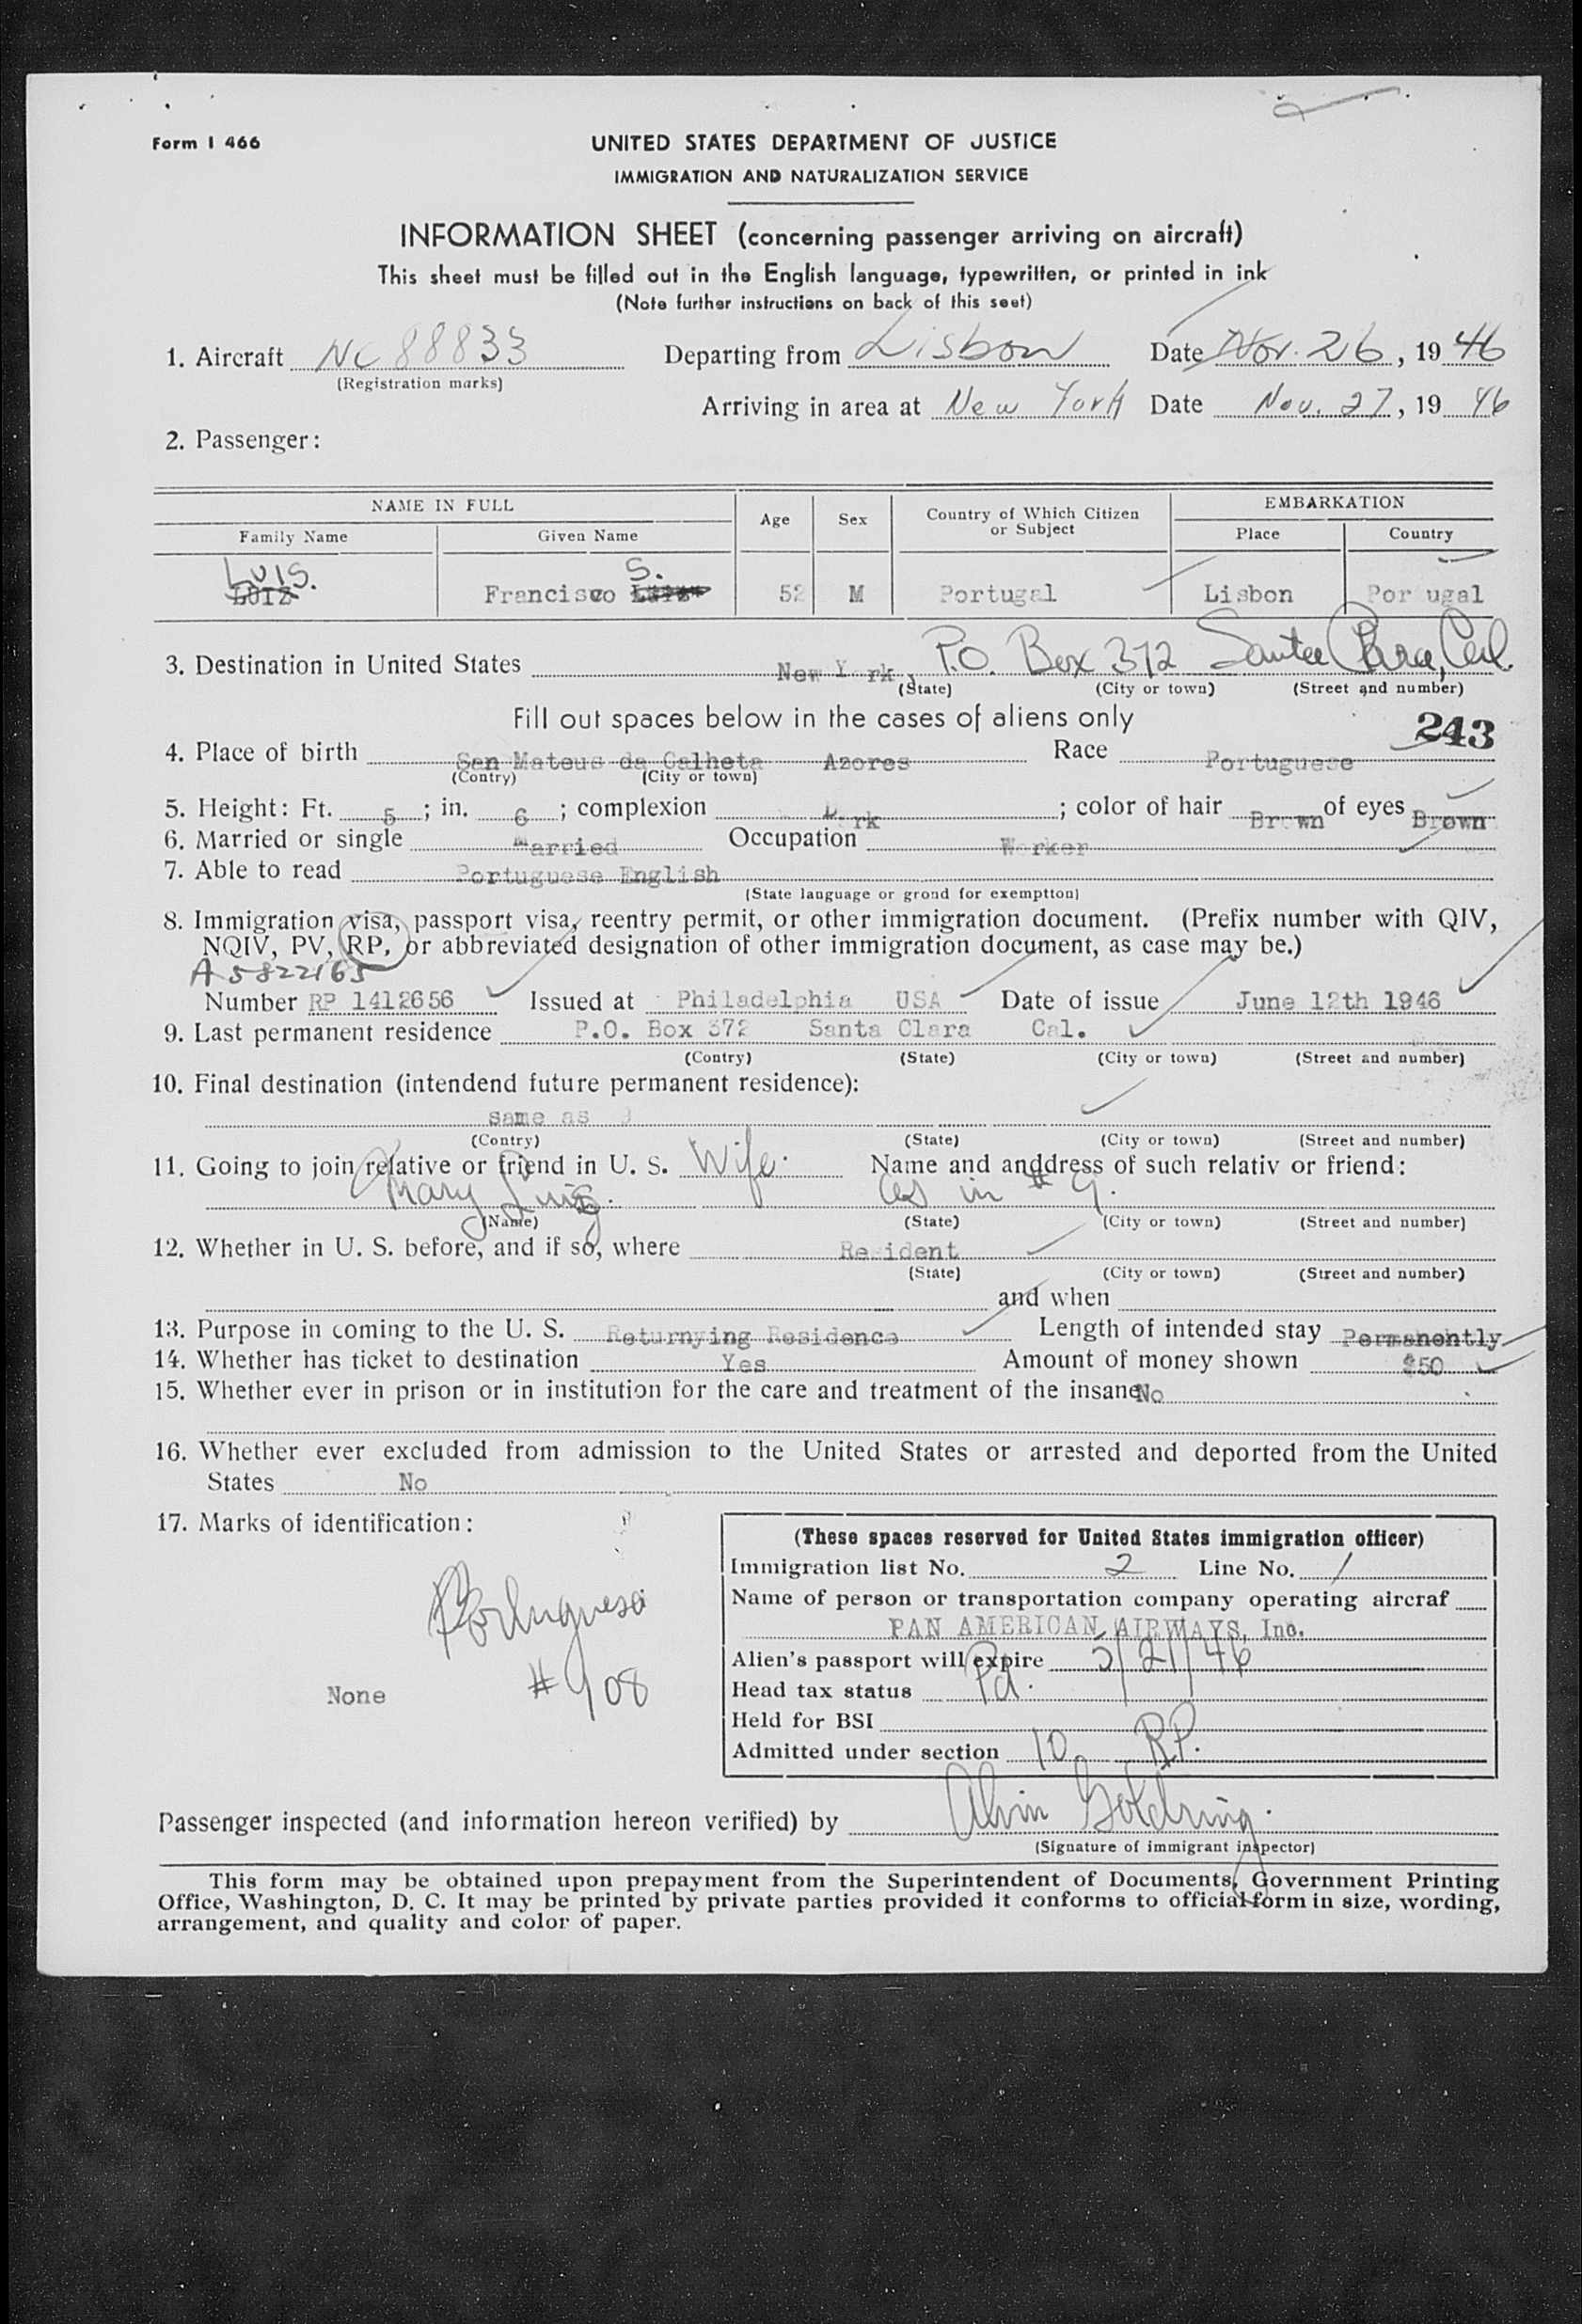 Form I 466
UNITED STATES DEPARTMENT OF JUSTICE
IMMIGRATION AND NATURALIZATION SERVICE
INFORMATION SHEET (concerning passenger arriving on aircraft)
This sheet must be filled out in the English language, typewritten, or printed in ink
(Note further instructions on back of this seet)
1. Aircraft NC 88833 Departing from Lisbon Date Nov. 26, 19 46
(Registration marks)
Arriving in area at New York Date Nov. 27, 19 46
2. Passenger:
NAME IN FULL Age Sex Country of Which Citizen or Subject EMBARKATION
Family Name Given Name Place Country
LUIS. S.
LUIZ Francisco 52 M Portugal Lisbon Por ugal
3. Destination in United States New Y rk, P.O. Box 372 Santa Clara, Cal.
(State) (City or town) (Street and number)
Fill out spaces below in the cases of aliens only
243
4. Place of birth San Mateus da Calheta Azores Race Portuguese
(Contry) (City or town)
5. Height: Ft. 5; in. 6; complexion D rk; color of hair Brown of eyes Brown
6. Married or single Married Occupation Worker
7. Able to read Portuguese English
(State language or grond for exemptton)
8. Immigration visa, passport visa, reentry permit, or other immigration document. (Prefix number with QIV,
NQIV, PV, RP, or abbreviated designation of other immigration document, as case may be.)
A 5822165
Number RP 1412656 Issued at Philadelphia USA Date of issue June 12th 1946
9. Last permanent residence P.O. Box 372 Santa Clara Cal.
(Contry) (State) (City or town) (Street and number)
10. Final destination (intendend future permanent residence):
same as 9
(Contry) (State) (City or town) (Street and number)
11. Going to join relative or friend in U. S. Wife. Name and anddress of such relativ or friend:
Mary Luis. as in # 9.
(Name) (State) (City or town) (Street and number)
12. Whether in U. S. before, and if so, where Resident
(State) (City or town) (Street and number)
and when
13. Purpose in coming to the U. S. Returnying Residence Length of intended stay Permanently
14. Whether has ticket to destination Yes Amount of money shown $50
15. Whether ever in prison or in institution for the care and treatment of the insane No
16. Whether ever excluded from admission to the United States or arrested and deported from the United
States No
17. Marks of identification:
Portuguese
# 908
None
(These spaces reserved for United States immigration officer)
Immigration list No. 2 Line No. 1
Name of person or transportation company operating aircraf
PAN AMERICAN AIRWAYS, Inc.
Alien's passport will expire 5/21/46
Head tax status Pd.
Held for BSI
Admitted under section 10, R.P.
Passenger inspected (and information hereon verified) by Alvin Goldring.
(Signature of immigrant inspector)
This form may be obtained upon prepayment from the Superintendent of Documents, Government Printing
Office, Washington, D. C. It may be printed by private parties provided it conforms to official form in size, wording,
arrangement, and quality and color of paper.